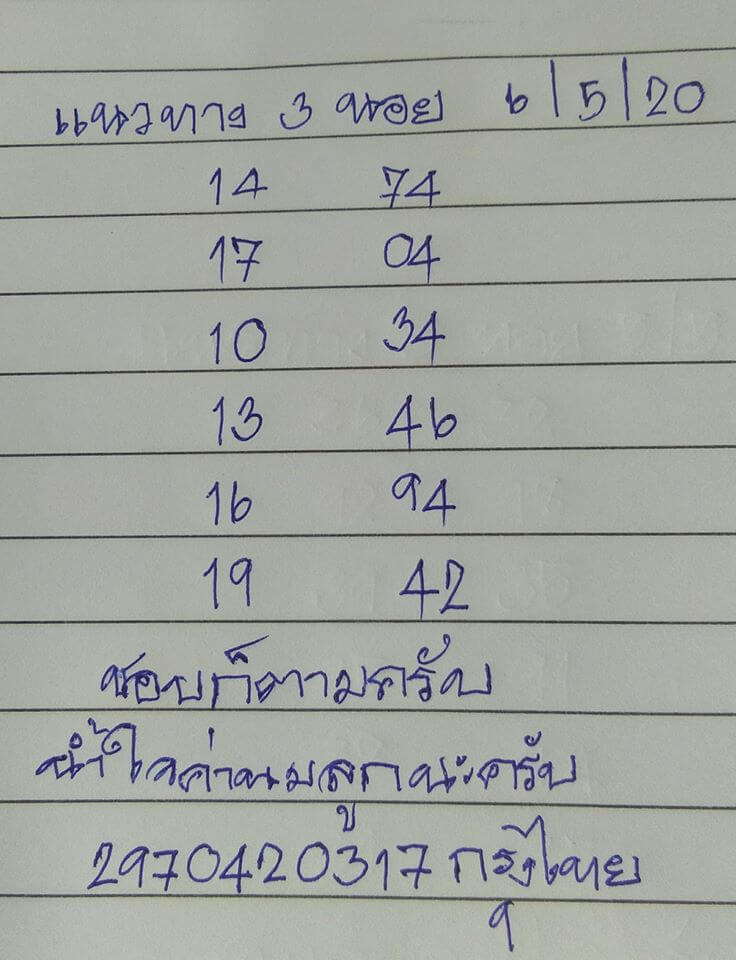 แนวทาง 3 หอย 6/5/20
14 74
17 04
10 34
13 46
16 94
19 42
ชอบก็ตามครับ
น้ำใจค่านมลูกนะครับ
2970420317 กรุงไทย